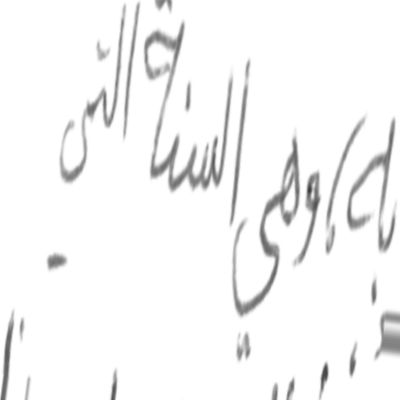 به، وهي السنة التي